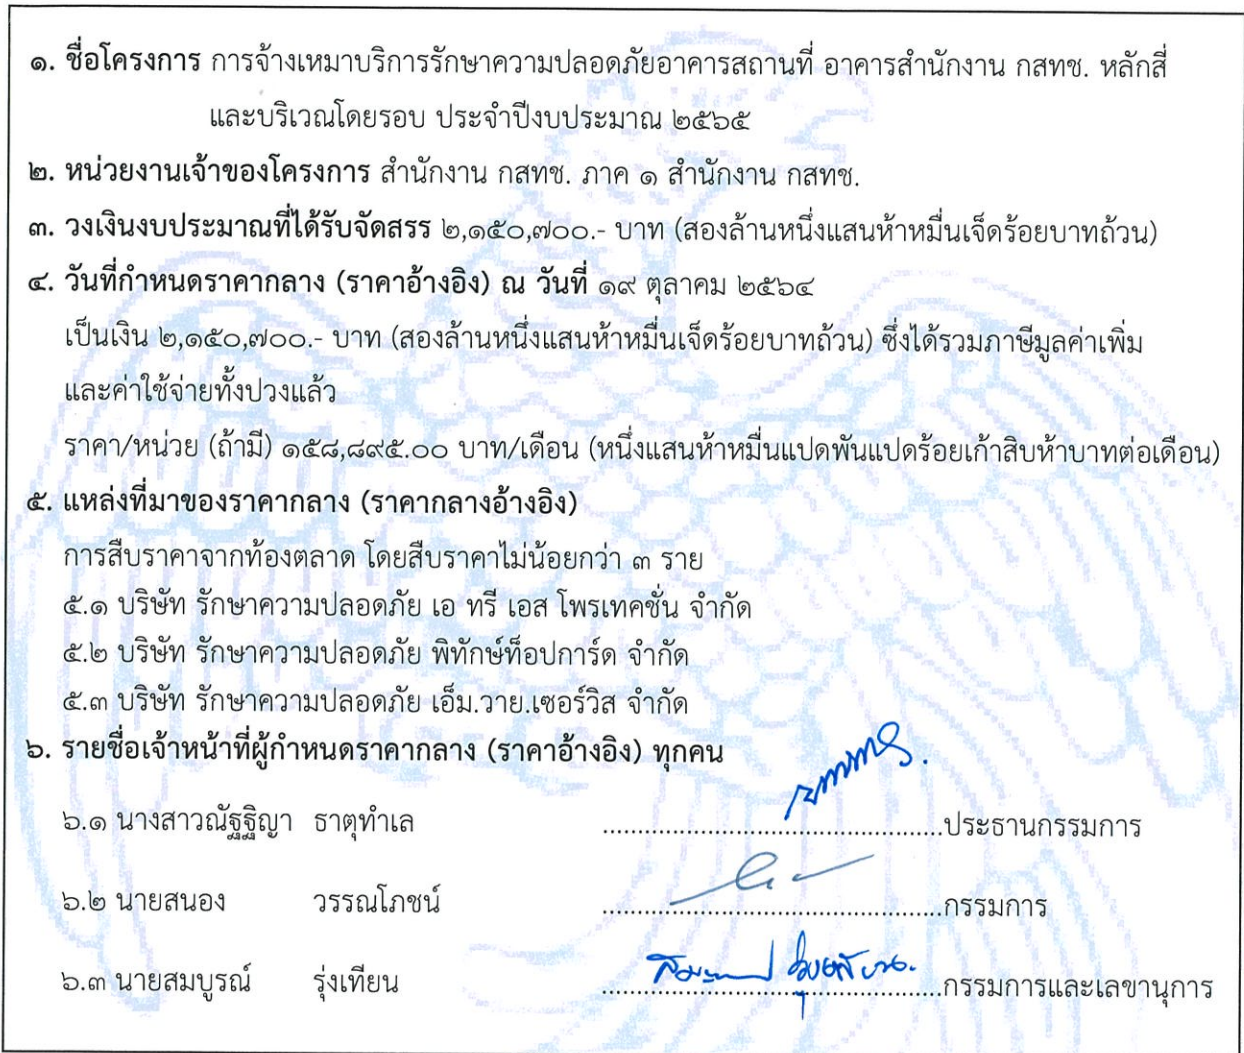 ๑. ชื่อโครงการ การจ้างเหมาบริการรักษาความปลอดภัยอาคารสถานที่ อาคารสำนักงาน กสทช. หลักสี่
และบริเวณโดยรอบ ประจำปีงบประมาณ ๒๕๖๕
๒. หน่วยงานเจ้าของโครงการ สำนักงาน กสทช. ภาค ๑ สำนักงาน กสทช.
๓. วงเงินงบประมาณที่ได้รับจัดสรร ๒,๑๕๐,๗๐๐.- บาท (สองล้านหนึ่งแสนห้าหมื่นเจ็ดร้อยบาทถ้วน)
๔. วันที่กำหนดราคากลาง (ราคาอ้างอิง) ณ วันที่ ๑๙ ตุลาคม ๒๕๖๔
เป็นเงิน ๒,๑๕๐,๗๐๐.- บาท (สองล้านหนึ่งแสนห้าหมื่นเจ็ดร้อยบาทถ้วน) ซึ่งได้รวมภาษีมูลค่าเพิ่ม
และค่าใช้จ่ายทั้งปวงแล้ว
ราคา/หน่วย (ถ้ามี) ๑๕๘,๘๙๕.๐๐ บาท/เดือน (หนึ่งแสนห้าหมื่นแปดพันแปดร้อยเก้าสิบห้าบาทต่อเดือน)
๕. แหล่งที่มาของราคากลาง (ราคากลางอ้างอิง)
การสืบราคาจากท้องตลาด โดยสืบราคาไม่น้อยกว่า ๓ ราย
๕.๑ บริษัท รักษาความปลอดภัย เอ ทรี เอส โพรเทคชั่น จำกัด
๕.๒ บริษัท รักษาความปลอดภัย พิทักษ์ท็อปการ์ด จำกัด
๕.๓ บริษัท รักษาความปลอดภัย เอ็ม.วาย.เซอร์วิส จำกัด
๖. รายชื่อเจ้าหน้าที่ผู้กำหนดราคากลาง (ราคาอ้างอิง) ทุกคน
๖.๑ นางสาวณัฐฐิญา ธาตุทำเล ............................................ประธานกรรมการ
๖.๒ นายสนอง วรรณโภชน์ ............................................กรรมการ
๖.๓ นายสมบูรณ์ รุ่งเทียน ............................................กรรมการและเลขานุการ